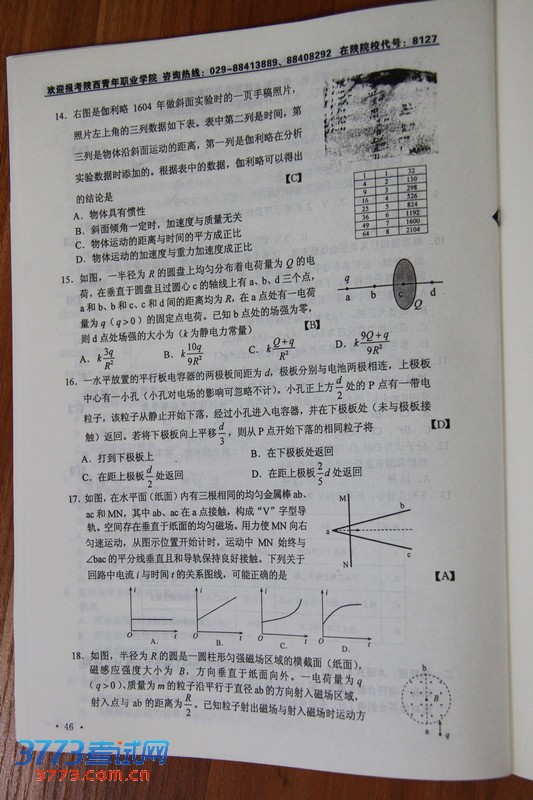 欢迎报考陕西青年职业学院 咨询热线：029-88413889、88408292 在陕院校代号：8127
14．右图是伽利略 1604 年做斜面实验时的一页手稿照片，
照片左上角的三列数据如下表。表中第二列是时间，第
三列是物体沿斜面运动的距离，第一列是伽利略在分析
实验数据时添加的。根据表中的数据，伽利略可以得出
的结论是 【C】
1 1 32
4 2 130
9 3 298
16 4 526
25 5 824
36 6 1192
49 7 1600
64 8 2104
A．物体具有惯性
B．斜面倾角一定时，加速度与质量无关
C．物体运动的距离与时间的平方成正比
D．物体运动的加速度与重力加速度成正比
15．如图，一半径为 R 的圆盘上均匀分布着电荷量为 Q 的电
荷，在垂直于圆盘且过圆心 c 的轴线上有 a、b、d 三个点，
a 和 b、b 和 c、c 和 d 间的距离均为 R，在 a 点处有一电荷
量为 q（q＞0）的固定点电荷。已知 b 点处的场强为零，
则 d 点处场强的大小为（k 为静电力常量） 【B】
A．k 3q/R² B．k 10q/9R² C．k Q+q/R² D．k 9Q+q/9R²
q
a b c d
Q
16．一水平放置的平行板电容器的两极板间距为 d，极板分别与电池两极相连，上极板
中心有一小孔（小孔对电场的影响可忽略不计）。小孔正上方 d/2 处的 P 点有一带电
粒子，该粒子从静止开始下落，经过小孔进入电容器，并在下极板处（未与极板接
触）返回。若将下极板向上平移 d/3，则从 P 点开始下落的相同粒子将 【D】
A．打到下极板上 B．在下极板处返回
C．在距上极板 d/2 处返回 D．在距上极板 2/5 d 处返回
17．如图，在水平面（纸面）内有三根相同的均匀金属棒 ab、
ac 和 MN，其中 ab、ac 在 a 点接触，构成“V”字型导
轨。空间存在垂直于纸面的均匀磁场。用力使 MN 向右
匀速运动，从图示位置开始计时，运动中 MN 始终与
∠bac 的平分线垂直且和导轨保持良好接触。下列关于
回路中电流 i 与时间 t 的关系图线，可能正确的是 【A】
M
b
a
c
N
i i i i
O t O t O t O t
A. B. C. D.
18．如图，半径为 R 的圆是一圆柱形匀强磁场区域的横截面（纸面），
磁感应强度大小为 B，方向垂直于纸面向外。一电荷量为 q
（q＞0）、质量为 m 的粒子沿平行于直径 ab 的方向射入磁场区域，
射入点与 ab 的距离为 R/2。已知粒子射出磁场与射入磁场时运动方
b
B
a
q
· 46 ·
3773考试网
3773.com.cn